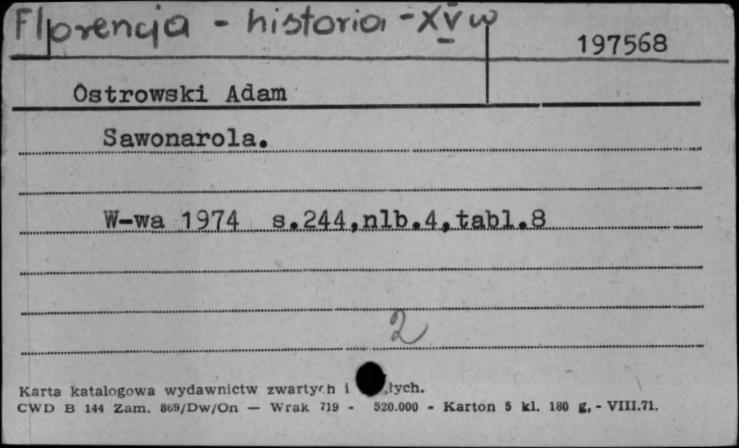 Florencja - historia - XV w
197568
Ostrowski Adam
Sawonarola.
W-wa 1974 s.244,nlb.4,tabl.8
2
Karta katalogowa wydawnictw zwartych i łych.
CWD B 144 Zam. 869/Dw/On — Wrak 719 - 520.000 - Karton 5 kl. 180 g, - VIII.71.